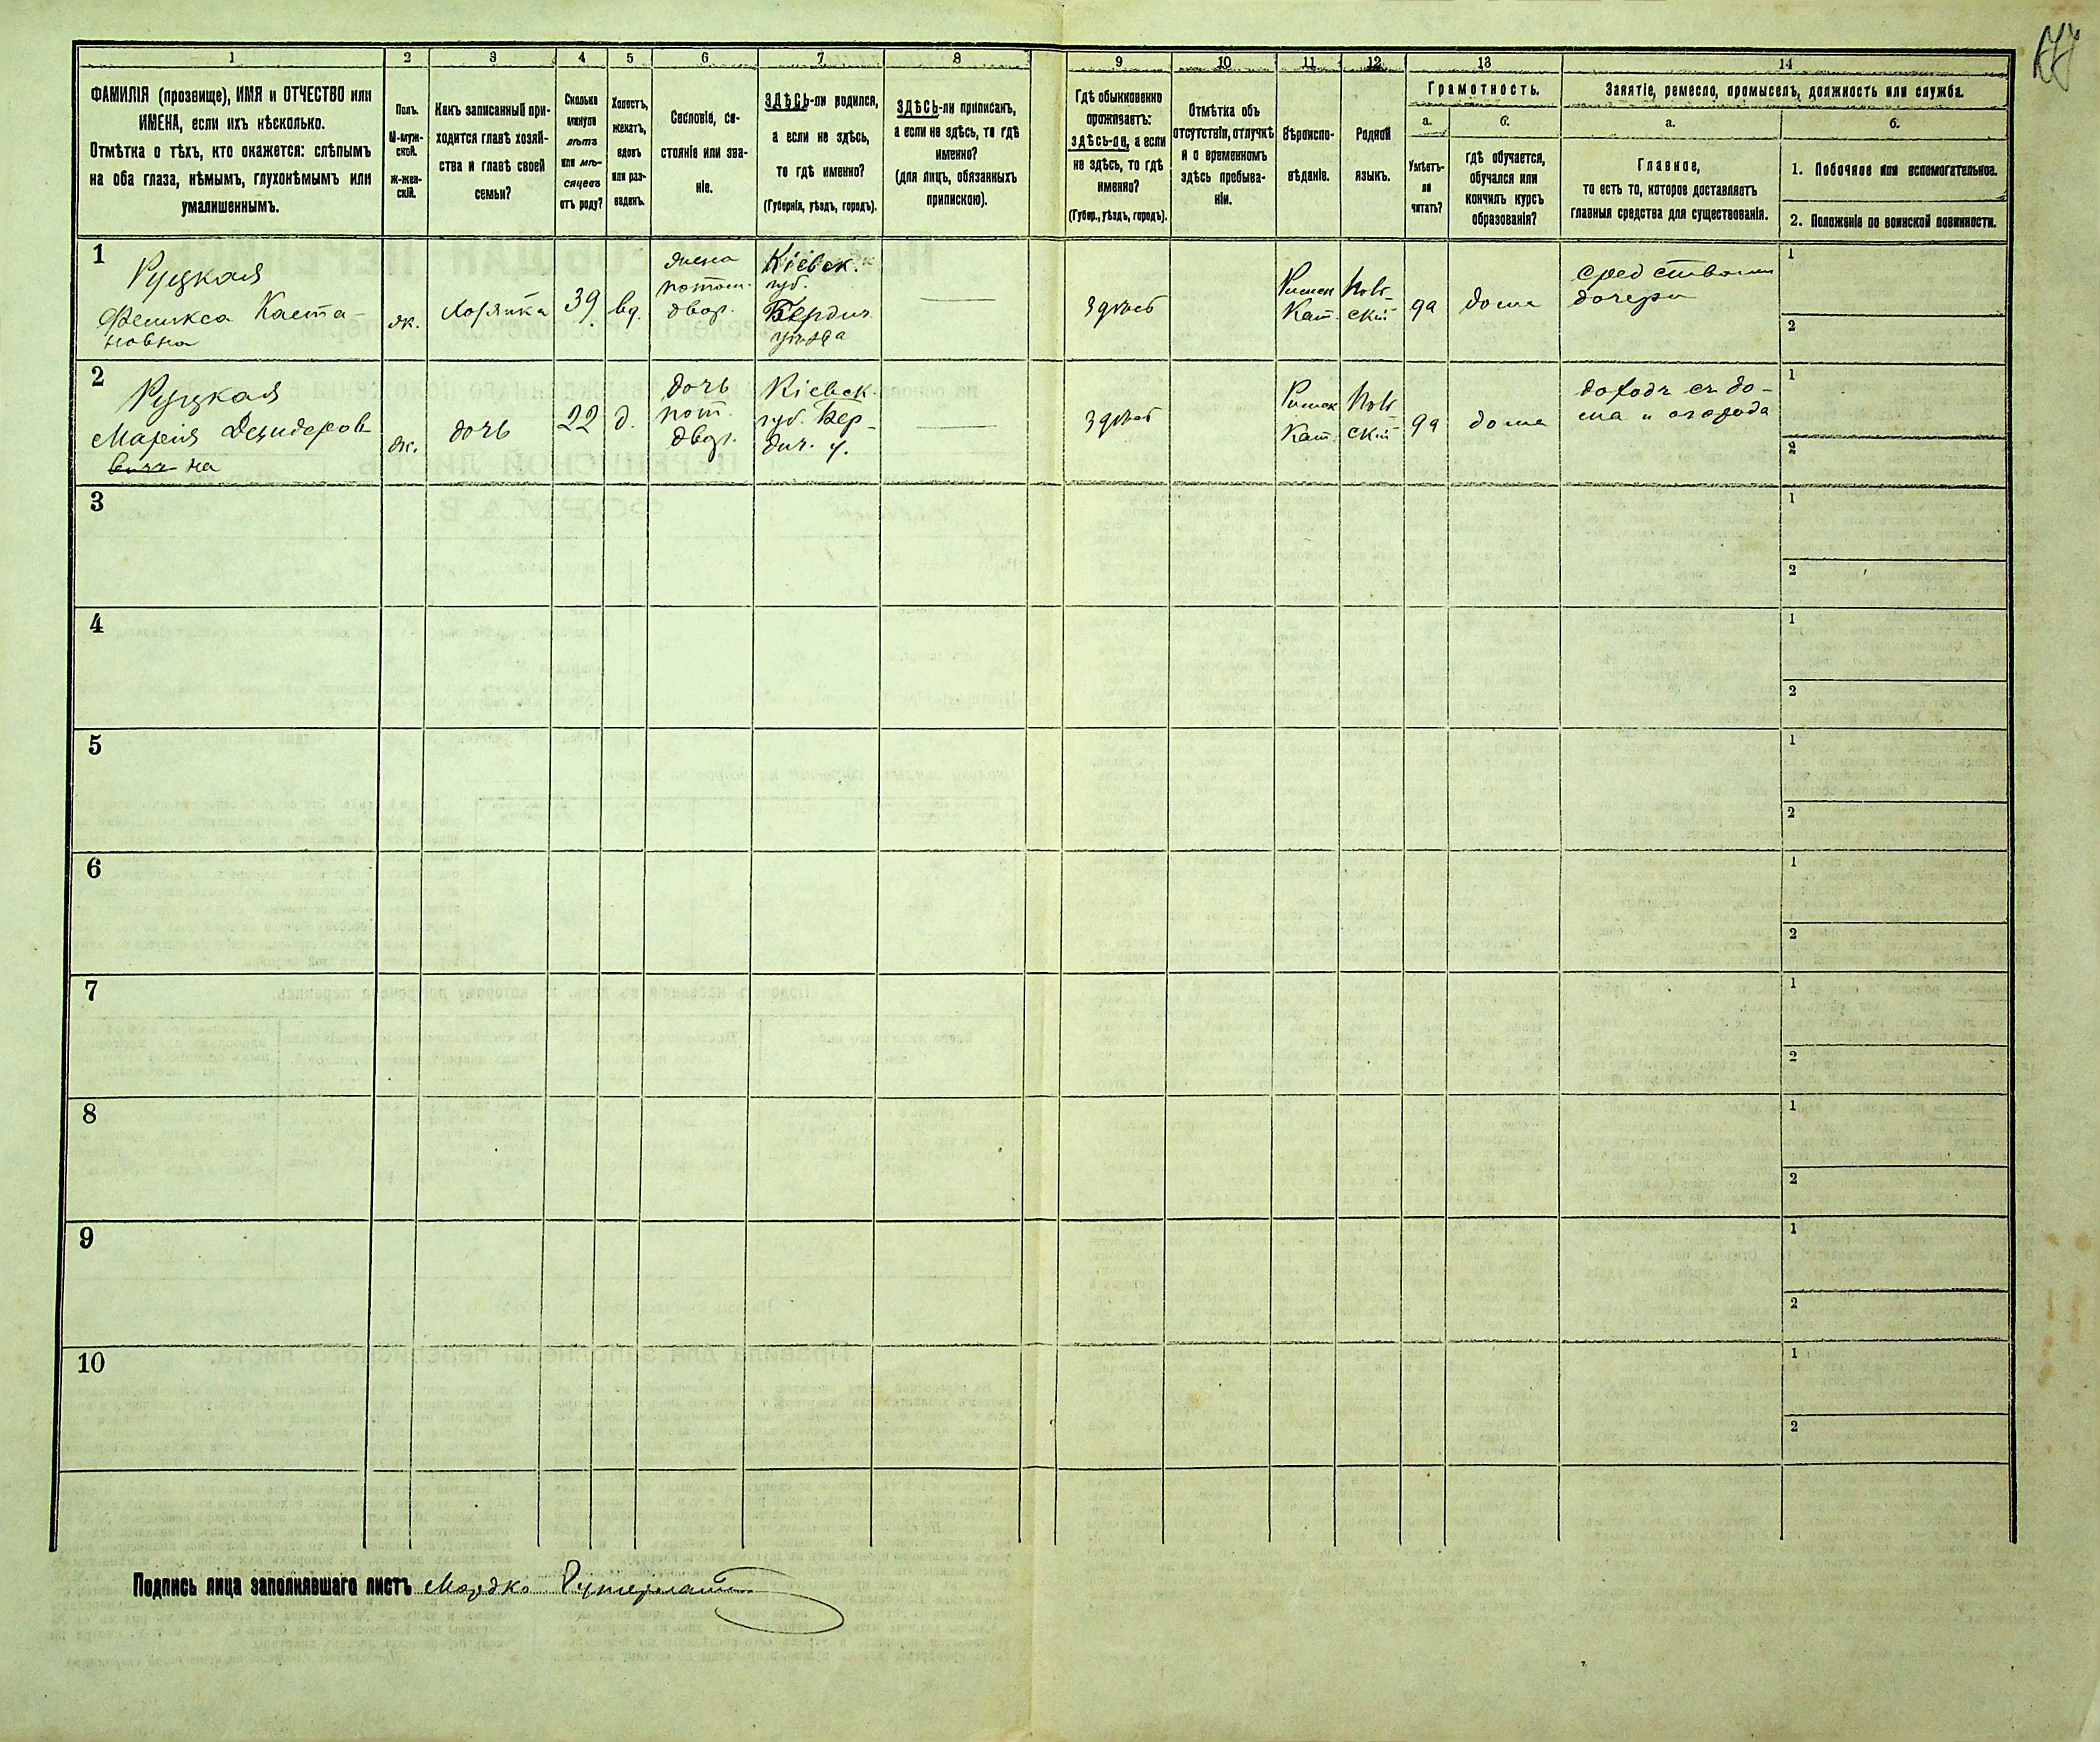 177
1
2
3
4
5
6
7
8
9
10
11
12
13
14
ФАМИЛІЯ (прозвище), ИМЯ и ОТЧЕСТВО или
ИМЕНА, если ихъ нѣсколько.
Отмѣтка о тѣхъ, кто окажется: слѣпымъ
на оба глаза, нѣмымъ, глухонѣмымъ или
умалишеннымъ.
Полъ.
М-муж-
ской.
Ж-жен-
скій.
Какъ записанный при-
ходится главѣ хозяй-
ства и главѣ своей
семьи?
Сколько
минуло
лѣтъ
или мѣ-
сяцевъ
отъ роду?
Холостъ,
женатъ,
вдовъ
или раз-
веденъ.
Сословіе, со-
стояніе или зва-
ніе.
ЗДѢСЬ-ли родился,
а если не здѣсь,
то гдѣ именно?
(Губернія, уѣздъ, городъ).
ЗДѢСЬ-ли приписанъ,
а если не здѣсь, то гдѣ
именно?
(для лицъ, обязанныхъ
припискою).
Гдѣ обыкновенно
проживаетъ:
здѣсь-ли, а если
не здѣсь, то гдѣ
именно?
(Губер., уѣздъ, городъ).
Отмѣтка объ
отсутствіи, отлучкѣ
и о временномъ
здѣсь пребыва-
ніи.
Вѣроиспо-
вѣданіе.
Родной
языкъ.
Грамотность.
а.
Умѣетъ-
ли
читать?
б.
гдѣ обучается,
обучался или
кончилъ курсъ
образованія?
Занятіе, ремесло, промыселъ, должность или служба.
а.
Главное,
то есть то, которое доставляетъ
главныя средства для существованія.
б.
1. Побочное или вспомогательное.
2. Положеніе по воинской повинности.
1
Руцкая
Феликса Каета-
новна
ж.
Хозяйка
39
вд.
жена
потом.
двор.
Кіевск.
губ.
Бердич.
уѣзда
здѣсь
Римск
Кат.
Поль
скій
да
дома
средствами
дочери
1
2
2
Руцкая
Марія Дезидеров
вич на
ж.
дочь
22
д.
дочь
пот.
двор.
Кіевск.
губ. Бер-
дич. у.
здѣсь
Римск
Кат.
Поль
скій
да
дома
доходъ съ до-
ма и огорода
1
2
3
1
2
4
1
2
5
1
2
6
1
2
7
1
2
8
1
2
9
1
2
10
1
2
Подпись лица заполнявшаго листъ Мордко